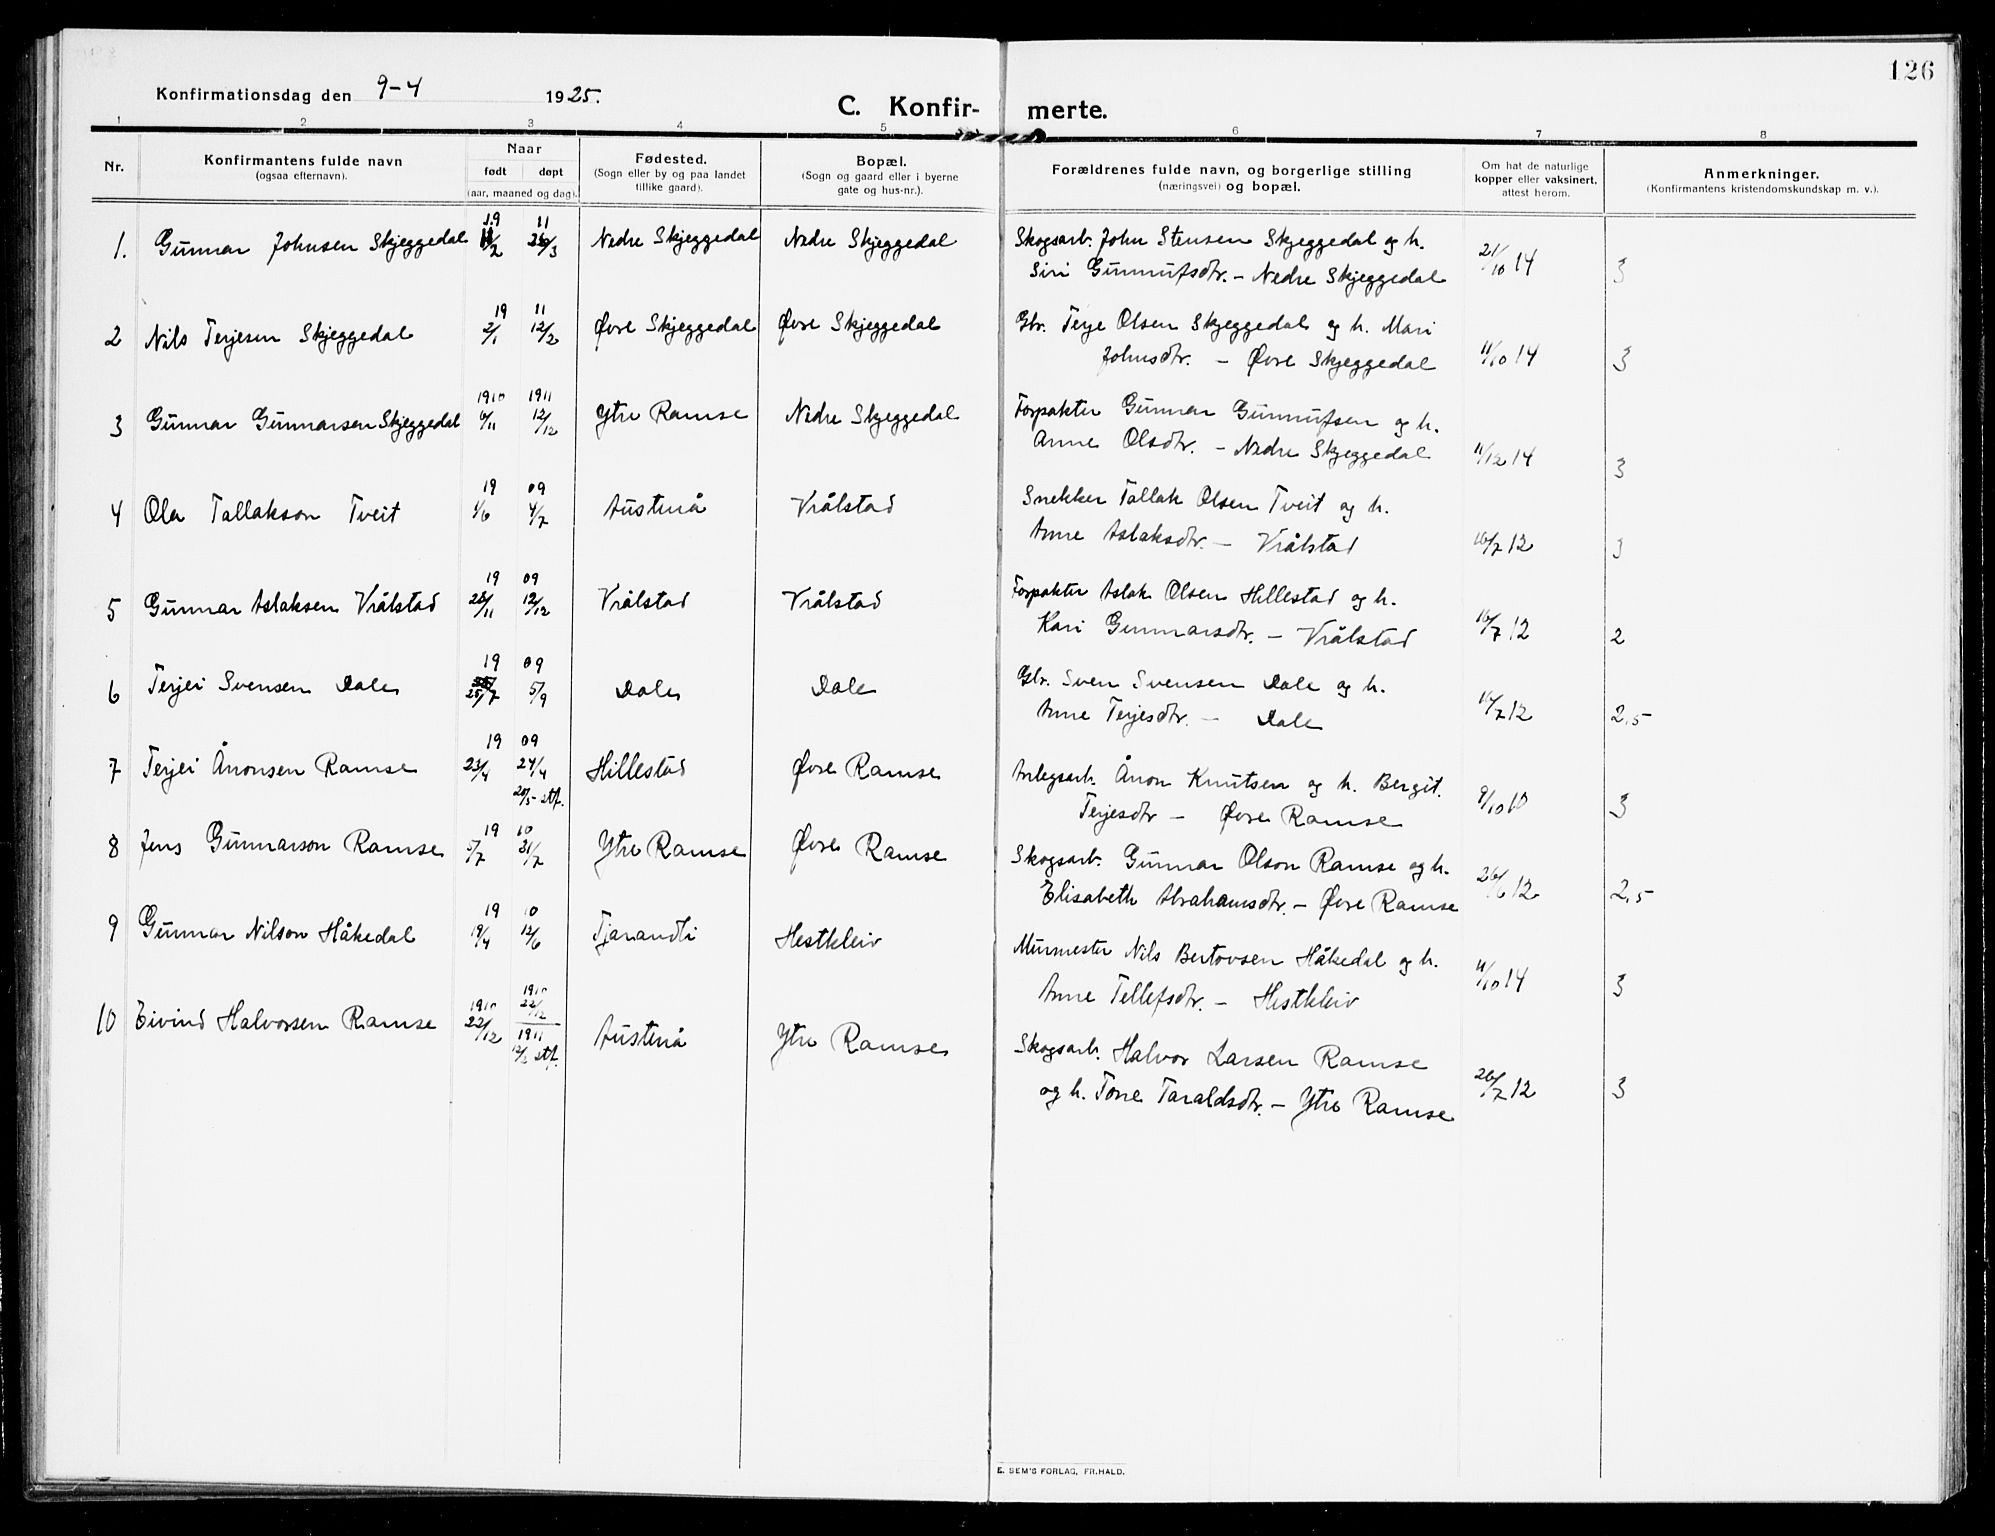 126
Konfirmationsdag den 9-4 1925.
C. Konfirmerte.
1 2 3 4 5 6 7 8
Nr. Konfirmantens fulde navn (ogsaa efternavn). Naar født døpt (aar, maaned og dag). Fødested. (Sogn eller by og paa landet tillike gaard). Bopæl. (Sogn og gaard eller i byerne gate og hus-nr.). Forældrenes fulde navn, og borgerlige stilling (næringsvei) og bopæl. Om hat de naturlige kopper eller vaksinert, attest herom. Anmerkninger. (Konfirmantens kristendomskundskap m. v.).
19 11
1. Gunnar Johnsen Skjeggedal /2 26/3 Nedre Skjeggedal Nedre Skjeggedal Skogsarb. John Stensen Skjeggedal og h.
Siri Gunnufsdtr. - Nedre Skjeggedal 21/10 14 3
19 11
2 Nils Terjesen Skjeggedal 2/1 12/2 Øvre Skjeggedal Øvre Skjeggedal Gbr. Terje Olsen Skjeggedal og h. Mari
Johnsdtr. - Øvre Skjeggedal 11/10 14 3
1910 1911
3 Gunnar Gunnarsen Skjeggedal 6/11 12/12 Ytre Ramse Nedre Skjeggedal Forpakter Gunnar Gunnufsen og h.
Anne Olsdtr. - Nedre Skjeggedal 11/12 14 3
19 09
4 Ola Tallakson Tveit 1/6 4/7 Austenå Vrålstad Snekker Tallak Olsen Tveit og h.
Anne Aslaksdtr. - Vrålstad 16/7 12 3
19 09
5 Gunnar Aslaksen Vrålstad 28/11 12/12 Vrålstad Vrålstad Forpakter Aslak Olsen Hillestad og h.
Kari Gunnarsdtr. - Vrålstad 16/7 12 2
19 09
6 Terjei Svensen Dale 25/7 5/9 Dale Dale Gbr. Sven Svensen Dale og h.
Anne Terjesdtr. - Dale 16/7 12 2,5
19 09
7 Terjei Ånonsen Ramse 23/4 24/4 Hillestad Øvre Ramse Anlegsarb. Ånon Knutsen og h. Bergit.
20/5 stf. Terjesdtr - Øvre Ramse 9/10 10 3
19 10
8 Jens Gunnarson Ramse 5/7 31/7 Ytre Ramse Øvre Ramse Skogsarb. Gunnar Olson Ramse og h.
Elisabeth Abrahamsdtr. - Øvre Ramse 26/6 12 2,5
19 10
9 Gunnar Nilson Håkedal 19/4 12/6 Tjarandli Hestkleiv Murmester Nils Bertovsen Håkedal og h.
Anne Tellefsdtr. - Hestkleiv 11/10 14 3
1910 1910
10 Eivind Halvorsen Ramse 22/12 22/12 Austenå Ytre Ramse Skogsarb. Halvor Larsen Ramse
1911 12/2 stf. og h. Tone Taraldsdtr. - Ytre Ramse 26/7 12 3
E. SEM'S FORLAG, FR.HALD.